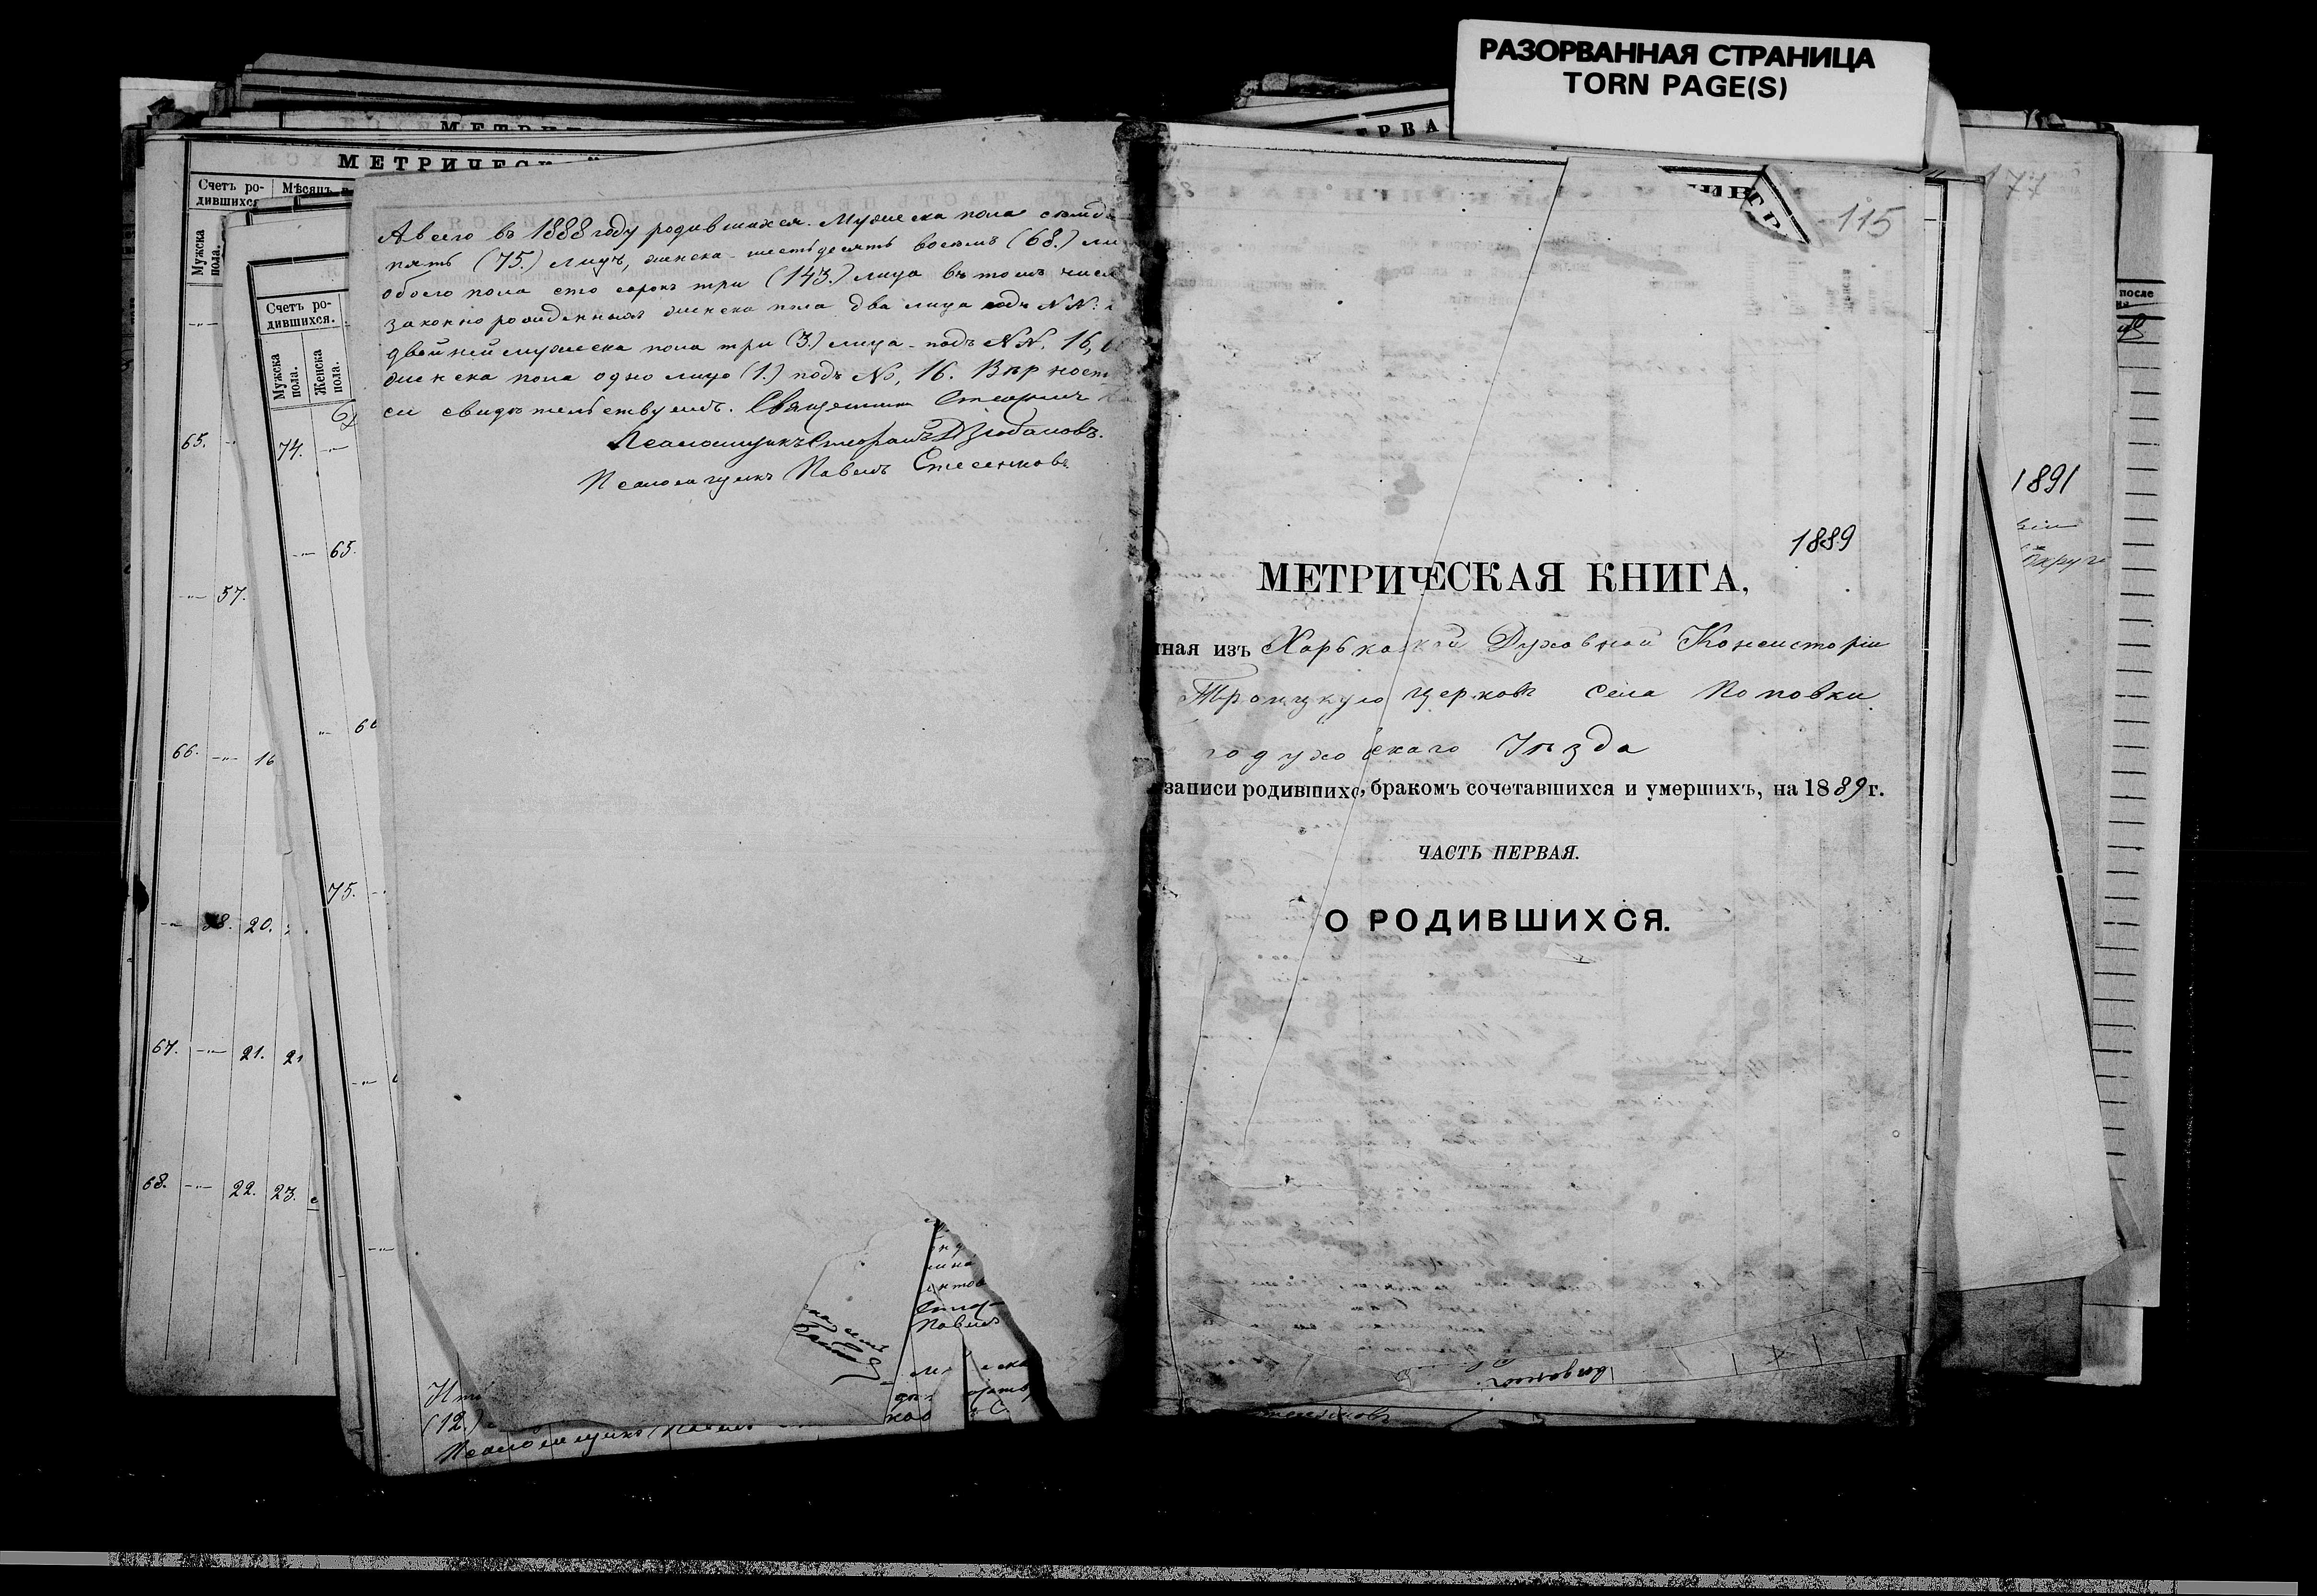 РАЗОРВАННАЯ СТРАНИЦА
TORN PAGE(S)
МЕТРИЧЕС
Счетъ ро-
дившихся
Мѣсяцъ
Мужска
пола.
Счетъ ро-
дившихся.
Мужска
пола.
Женска
пола.
65.
74.
65.
57.
66.
16
75.
20.
67.
21.
21
68.
22.
23.
А всего въ 1888 году родившихся. Мужеска пола семьде
пять (75.) лицъ, женска шестьдесятъ восемь (68.) ли
обоего пола сто сорокъ три (143.) лица въ томъ числ
законнорожденныхъ женска пола два лица подъ NN:
двойней мужеска пола три (3.) лица подъ NN. 16,
женска пола одно лицо (1.) подъ №, 16. Вѣрность
си свидѣтельствуемъ. Священникъ
Псаломщикъ Стефанъ Дзюбановъ.
Псаломщикъ Павелъ
(12.)
Псаломщикъ
Павелъ
115
177
1889
МЕТРИЧЕСКАЯ КНИГА,
ная изъ Харьковской Духовной Консисторіи
Троицкую церковь села Поповки
годуховскаго Уѣзда
записи родившихс, бракомъ сочетавшихся и умершихъ, на 1889 г.
ЧАСТЬ ПЕРВАЯ.
О РОДИВШИХСЯ.
1891
после